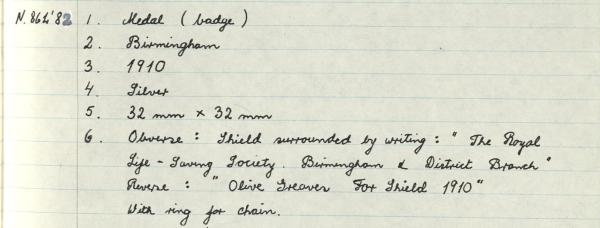 N.864'82 1. Medal (badge)
2. Birmingham
3. 1910
4. Silver
5. 32 mm × 32 mm
6. Obverse : Shield surrounded by writing : " The Royal
Life-Saving Society. Birmingham & District Branch"
Reverse : " Olive Greaves For Shield 1910"
With ring for chain.